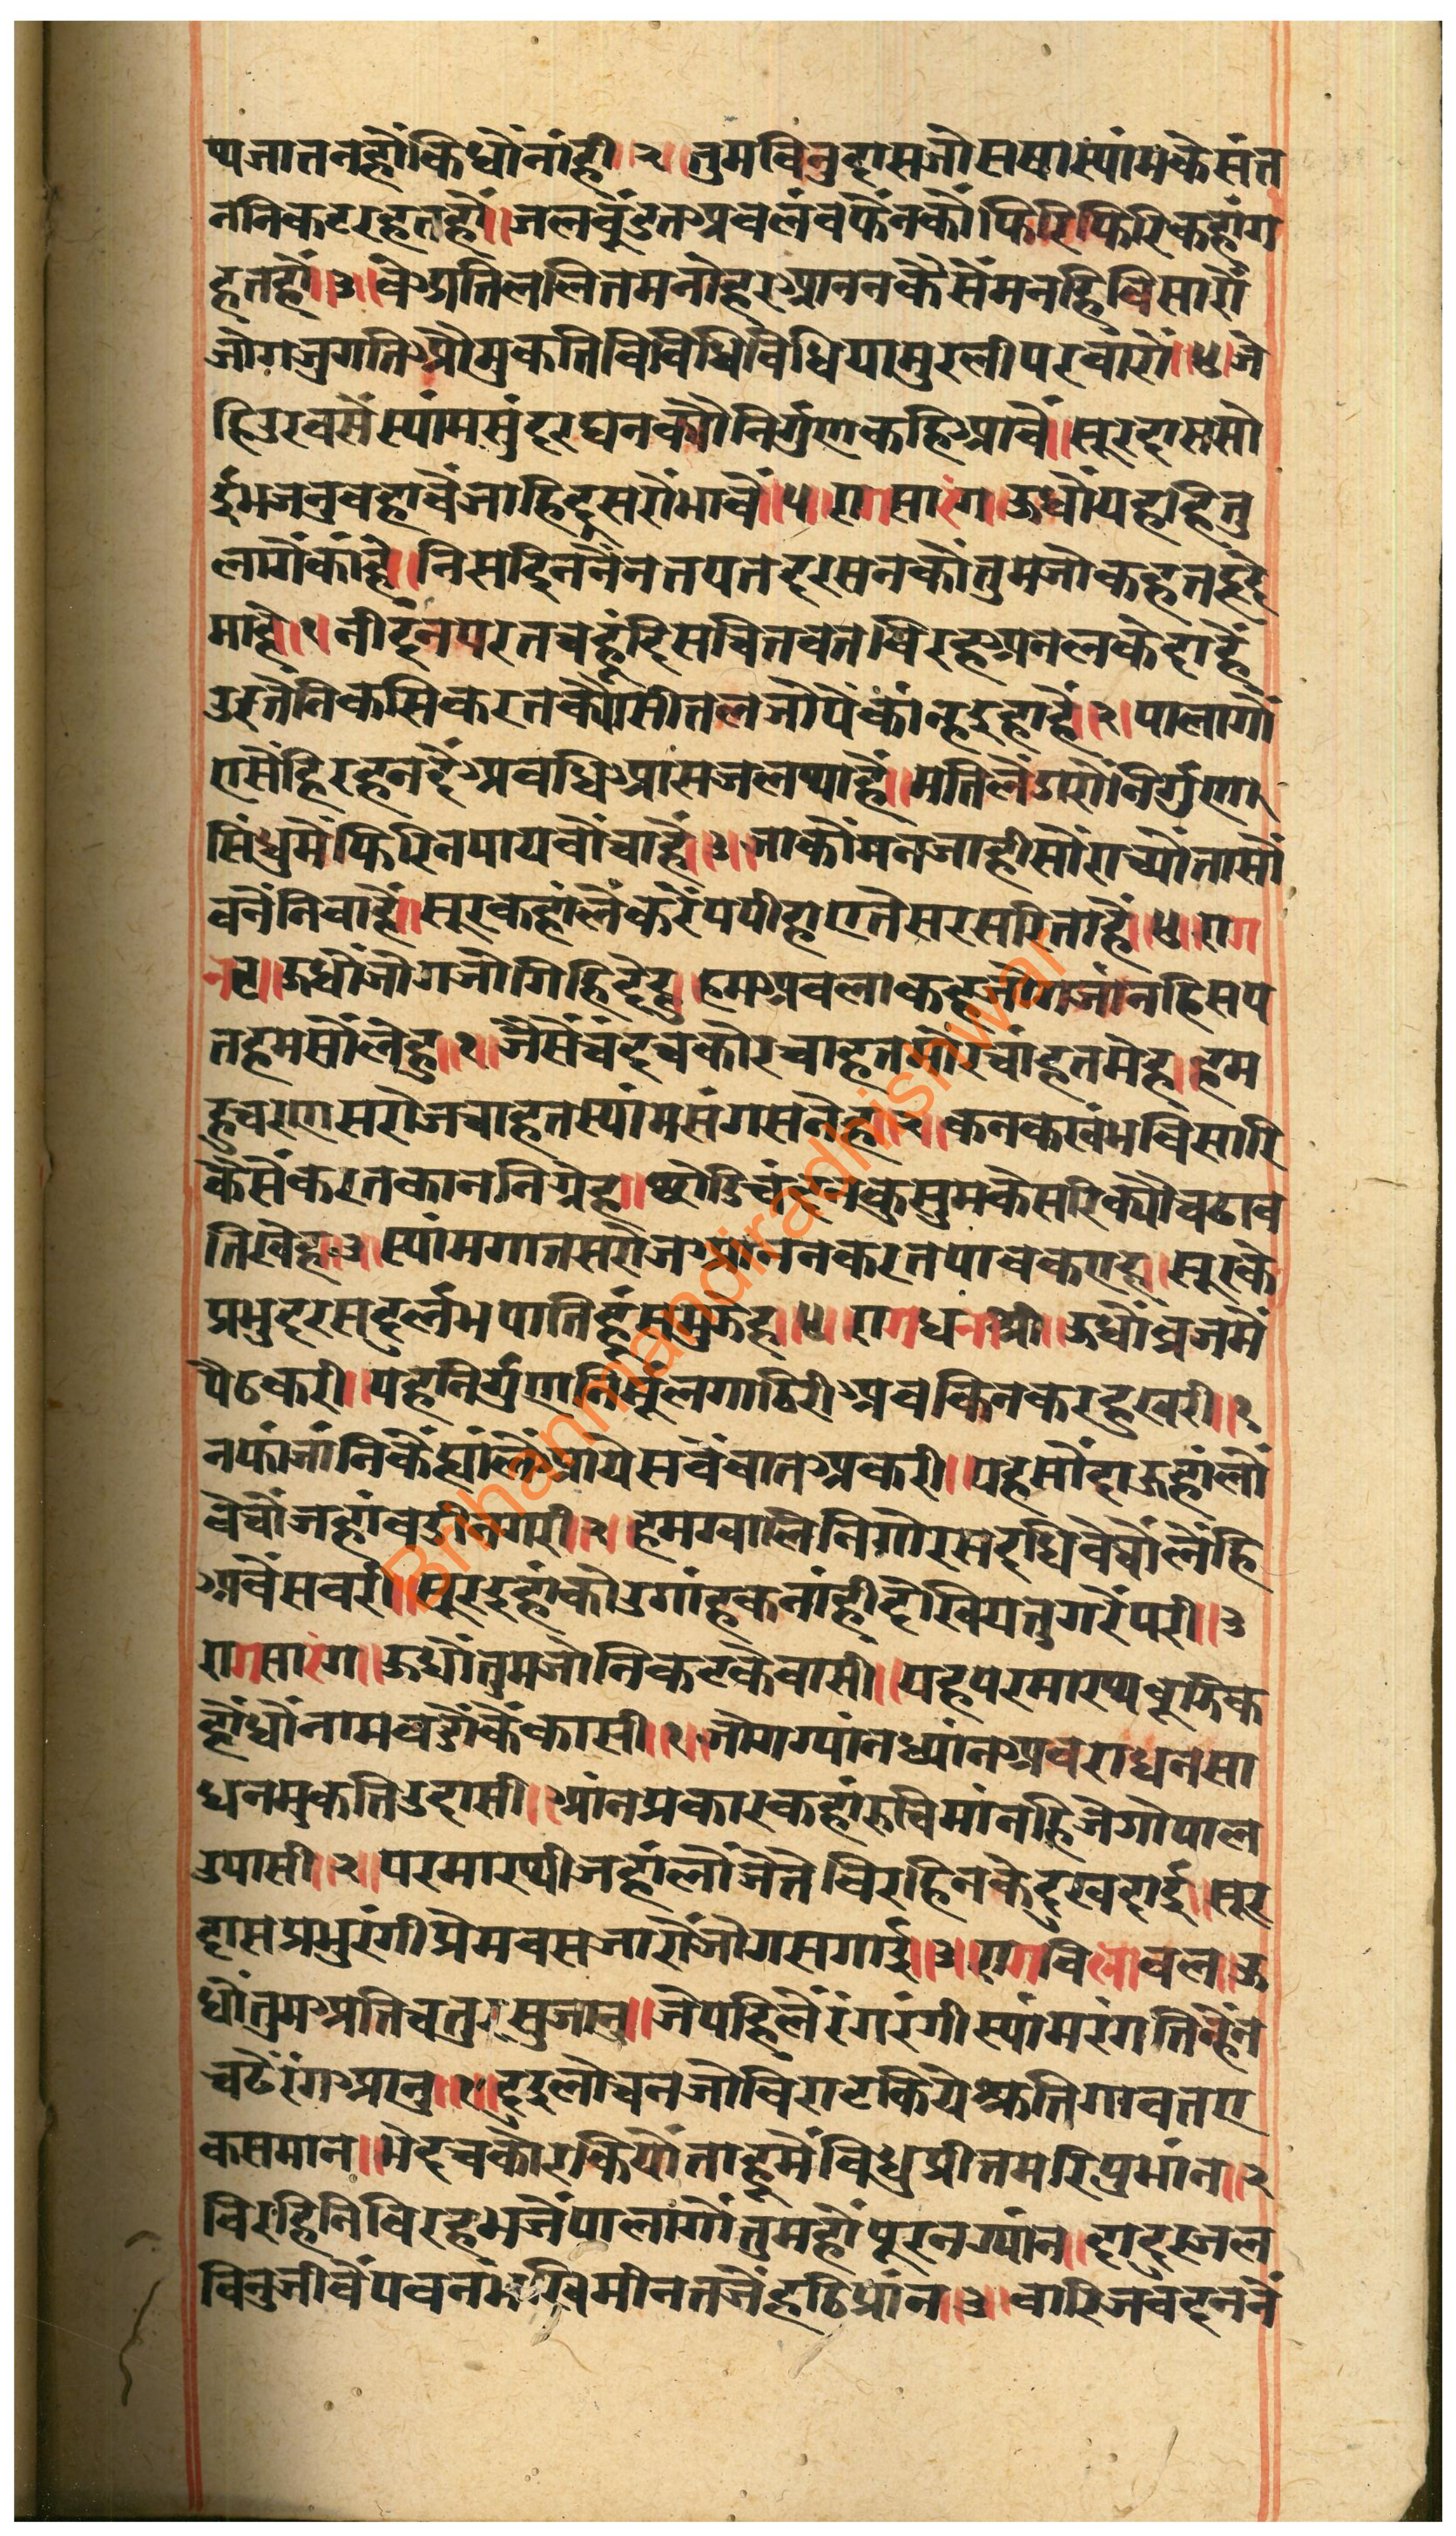 ष्यजातनहौंकिधौंनांही॥२॥तुमबिनुदासजोससषास्यांमकेसंत
ननिकटरहतहौ॥जलबूडतअवलंबफेंनकौंफिरिफिरिकहांग
हतहौं॥३॥वेअतिललितमनोहरआननकैसेंमनहिबिसारौं
जोगजुगतिऔमुकतिबिबिधिबिधियामुरलीपरवारौं॥४॥जे
हिउरबसेंस्यांमसुंदरघनक्यौंनिर्गुणकहिआवैं॥सूरदाससो
ईभजनुबहावैंजाहिदूसरौभावैं॥५॥रागसारंग॥ऊधौंयहहितु
लागैंकांहें॥निसदिननैंनतपतदरसनकौंतुमजोकहतहृदे
मांहे॥१॥नीदंनपरतचहूंदिसचितवतविरहअनलकेदाहें
उरतेंनिकसिकरतक्यौंसीतलजोपैंकांन्हइहाहैं॥२॥पालागौं
एसेंहिरहनदैंअवधिआसजलथाहैं॥मतिलेंडारौनिर्गुण
सिंधुमेंफिरिनपायबौंचाहें॥३॥जाकौंमनजाहीसौंराच्यौंतासौं
बनेंनिबाहें॥सूरकहांलेंकरेंपपीहाएतेसरसरिताहैं॥४॥राग
नट॥ऊधौंजोगजोगिहिदेहु॥हमअबलाकहजोगजांनहिसप
तहमसौंलेहु॥१॥जैसेंचंदचकोरचाहतमोरचांहतमेह॥हम
हुचरणसरोजचाहतस्यांमसंगसनेह॥२॥कनकखंभबिसारि
कैसेंकरतकाननिग्रेह॥छोडिचंदनकुसुमकेसरिक्यौंचढाव
तिखेह॥३॥स्यांमगातसरोजआननकरतपावकएह॥सूरके
प्रभुदरसदुर्लभपातिहूंसमुझेह॥४॥रागधनाश्री॥ऊधौंब्रजमें
पैठकरी॥यहनिर्गुणनिर्मूलगाठिरीअबकिनकरहुखरी॥१
नफांजांनिकैंह्यांलैंआयेसबैंबातअकरी॥यहसौंदाऊहांलौं
बेचौंजहांबडीनगरी॥२॥हमग्वालिनिगोरसदधिबेचौंलेंहि
अबैंसबरीं॥सूरइहांकोउगांहकनांहीदेखियतुगरेंपरी॥३
रागसारंग॥ऊधौंतुमजोनिकटकेवासीं॥यहपरमारथबूझिक
हौंधौंनामबडौंकैंकासी॥१॥जोगग्यांनध्यांनअवराधनसा
धनमुकतिउदासी॥आंनप्रकारकहांरुचिमांनहिजेगोपाल
उपासी॥२॥परमारथीजहांलौंजेतेबिरहिनकेदुखदाई॥सूर
दासप्रभुरंगीप्रेमबसजारौंजोगसगाई॥३॥रागबिलावल॥ऊ
धौंतुमअतिचतुरसुजानु॥जेपहिलेंरंगरंगीस्यांमरंगतिन्हेंन
चढेरंगआनु॥१॥द्वदुलोचनजोबिराटकियेश्रुतिगावतए
कसमान॥भेदचकोरकियोताहूमेंबिधुप्रीतमरिपुभांन॥२
बिरहिनिबिरहभजैंपालागौंतुमहौंपूरनग्यांन॥दादुरजल
बिनुजीबैंपवनभखिमीनतजेंहठिप्रांन॥३॥वारिजबदननें